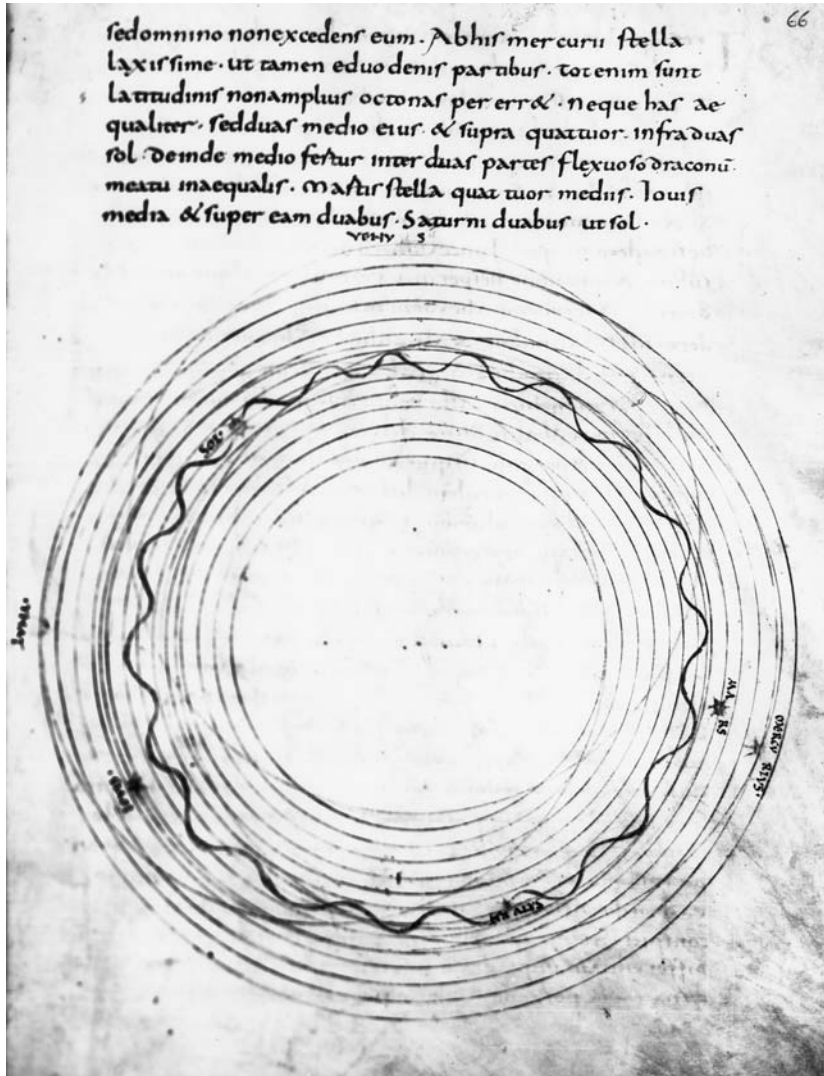 66
sed omnino non excedens eum. Ab his mercurii stella
laxissime. ut tamen eduodenis partibus. tot enim sunt
latitudinis non amplius octonas pererr&. neque has ae
qualiter. sed duas medio eius. & supra quattuor. infra duas
sol. deinde medio fertur inter duas partes flexuoso draconū
meatu inaequalis. martis stella quattuor mediis. Iouis
media & super eam duabus. Saturni duabus ut sol.
VENUS
SOL.
MARS
MERCURIVS.